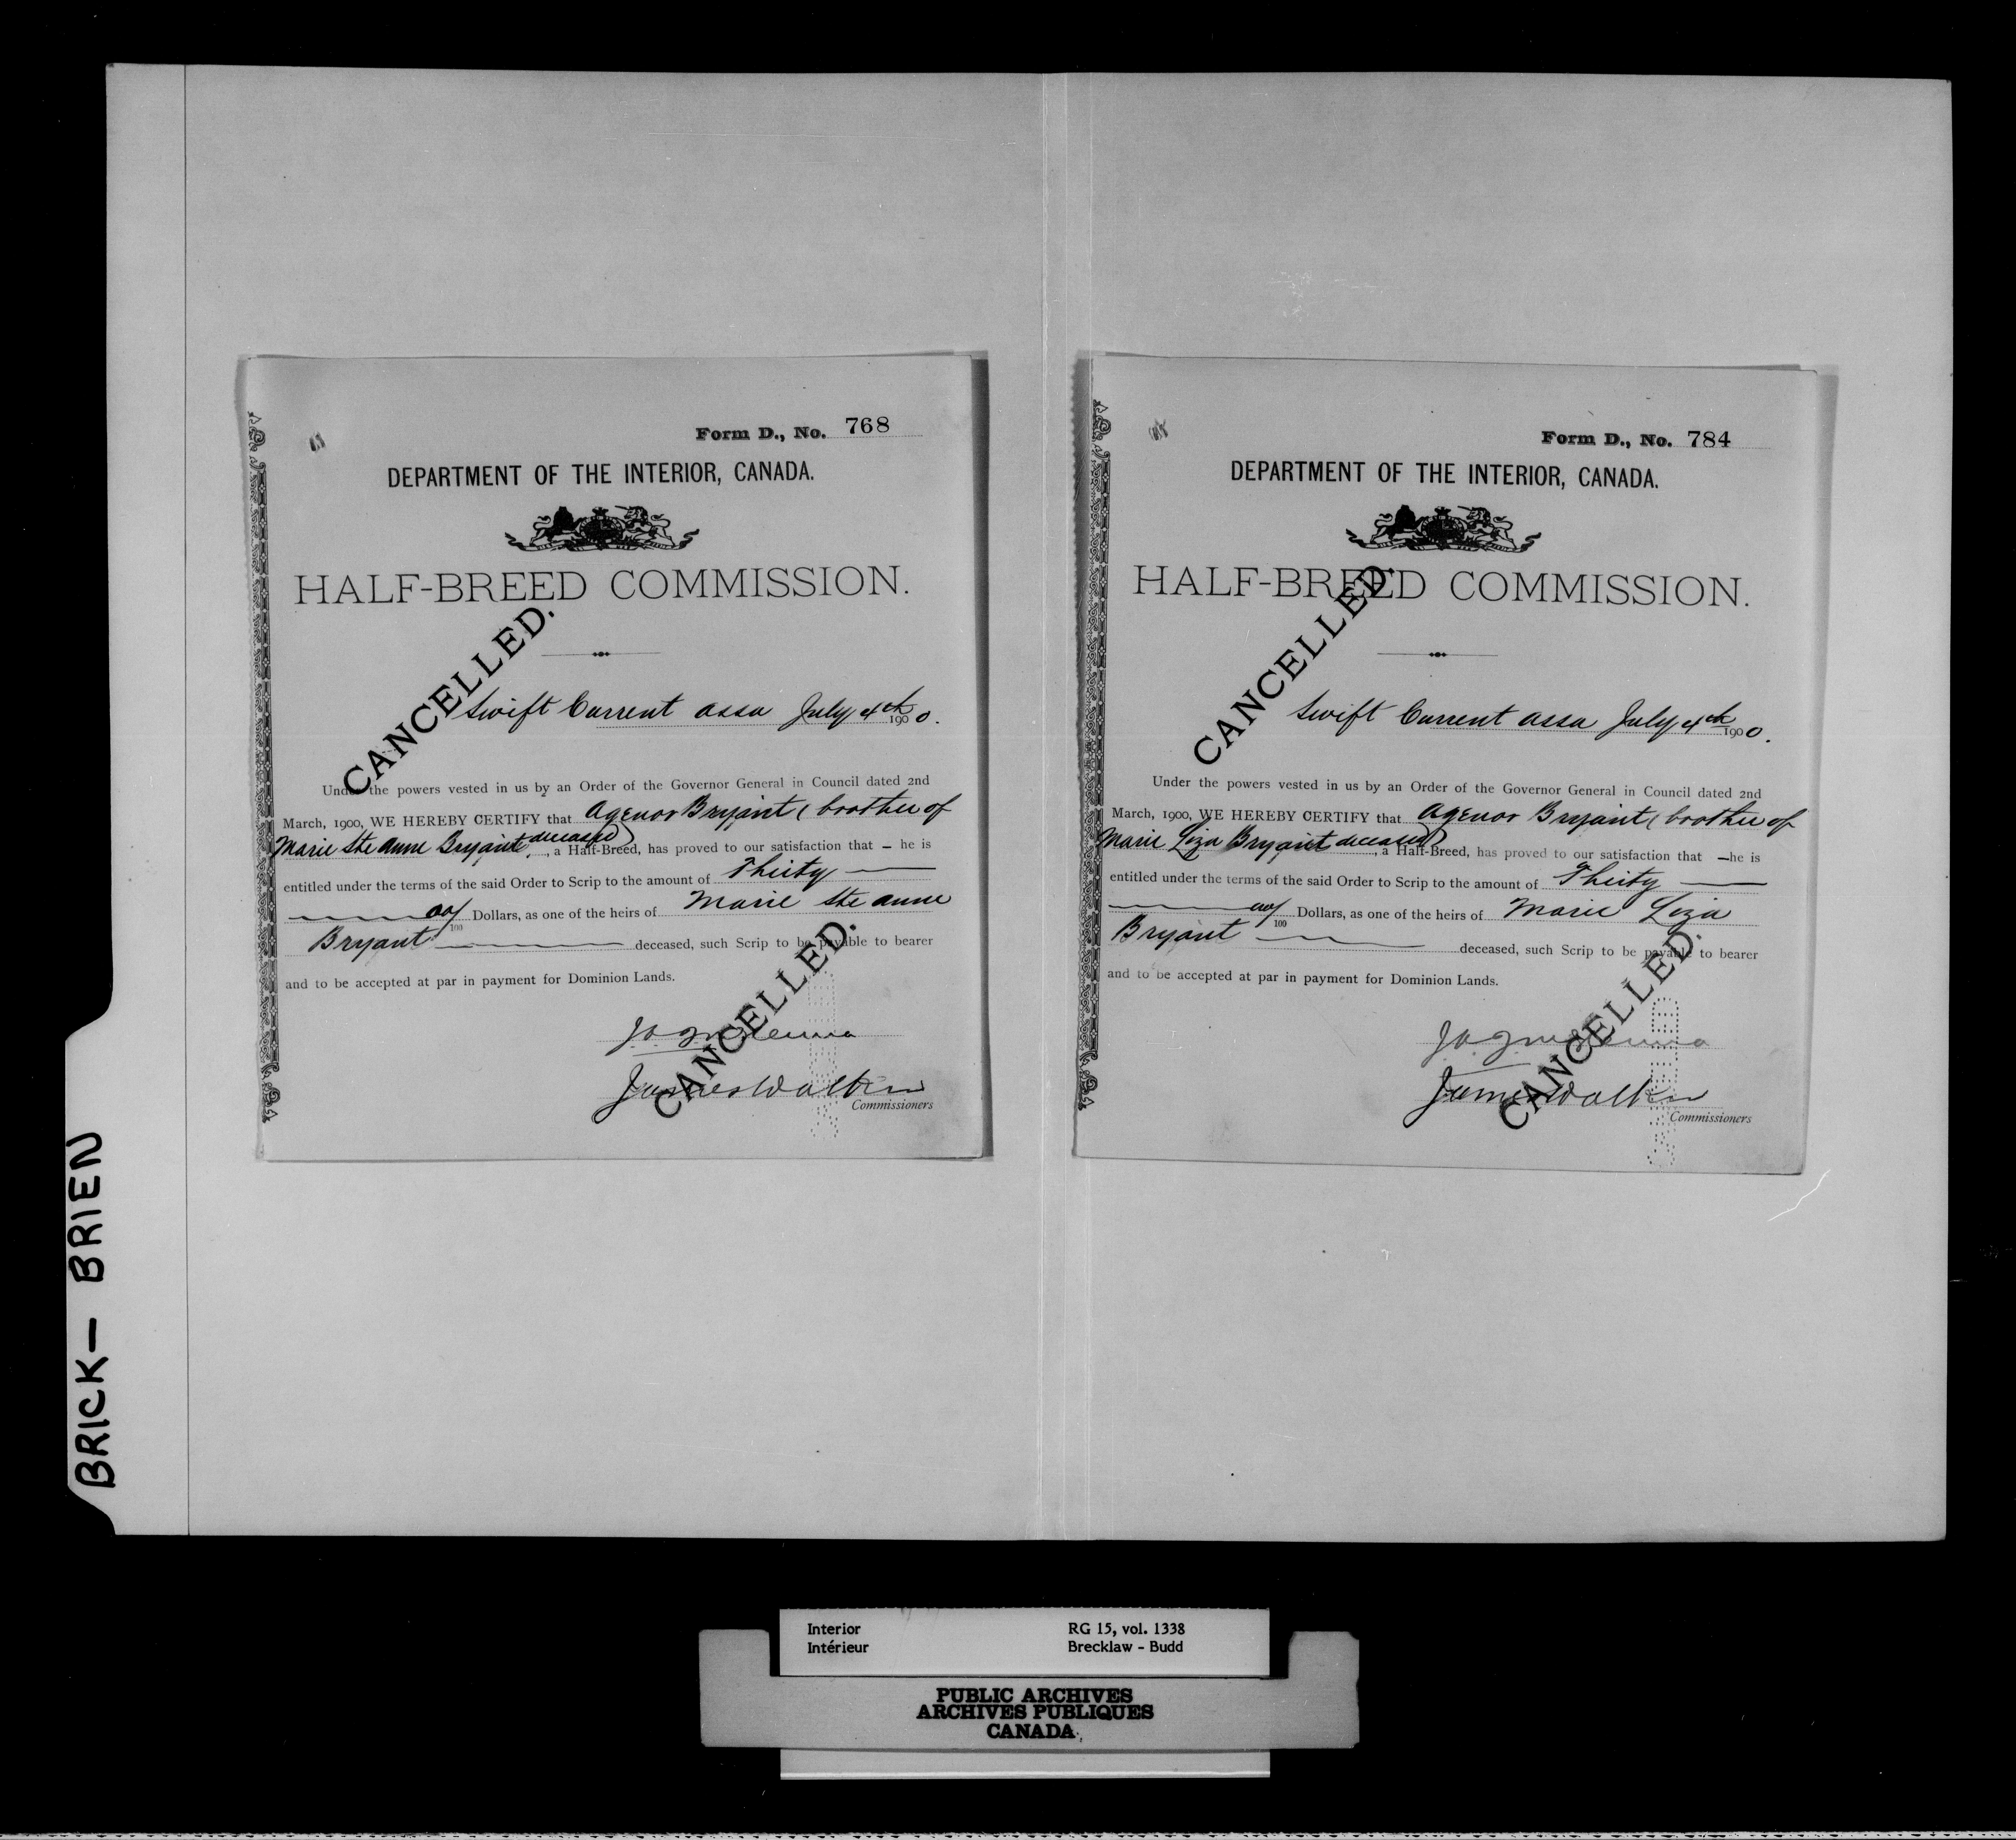 Form D., No. 768
DEPARTMENT OF THE INTERIOR, CANADA.
HALF-BREED COMMISSION.
CANCELLED.
Swift Current assa July 4th 1900.
Under the powers vested in us by an Order of the Governor General in Council dated 2nd
March, 1900, WE HEREBY CERTIFY that Agenor Bryant ( brother of
Marie Ste Anne Bryant deceased) , a Half-Breed, has proved to our satisfaction that – he is
entitled under the terms of the said Order to Scrip to the amount of Thirty
00/100 Dollars, as one of the heirs of Marie Ste Anne
Bryant deceased, such Scrip to be payable to bearer
and to be accepted at par in payment for Dominion Lands.
CANCELLED.
James Walker
Commissioners
Form D., No. 784
DEPARTMENT OF THE INTERIOR, CANADA.
HALF-BREED COMMISSION.
CANCELLED.
Swift Current assa July 4th 1900.
Under the powers vested in us by an Order of the Governor General in Council dated 2nd
March, 1900, WE HEREBY CERTIFY that Agenor Bryant ( brother of
Marie Liza Bryant deceased) , a Half-Breed, has proved to our satisfaction that – he is
entitled under the terms of the said Order to Scrip to the amount of Thirty
00/100 Dollars, as one of the heirs of Marie Liza
Bryant deceased, such Scrip to be payable to bearer
and to be accepted at par in payment for Dominion Lands.
CANCELLED.
James Walker
Commissioners
BRICK – BRIEN
Interior
Intérieur
RG 15, vol. 1338
Brecklaw - Budd
PUBLIC ARCHIVES
ARCHIVES PUBLIQUES
CANADA